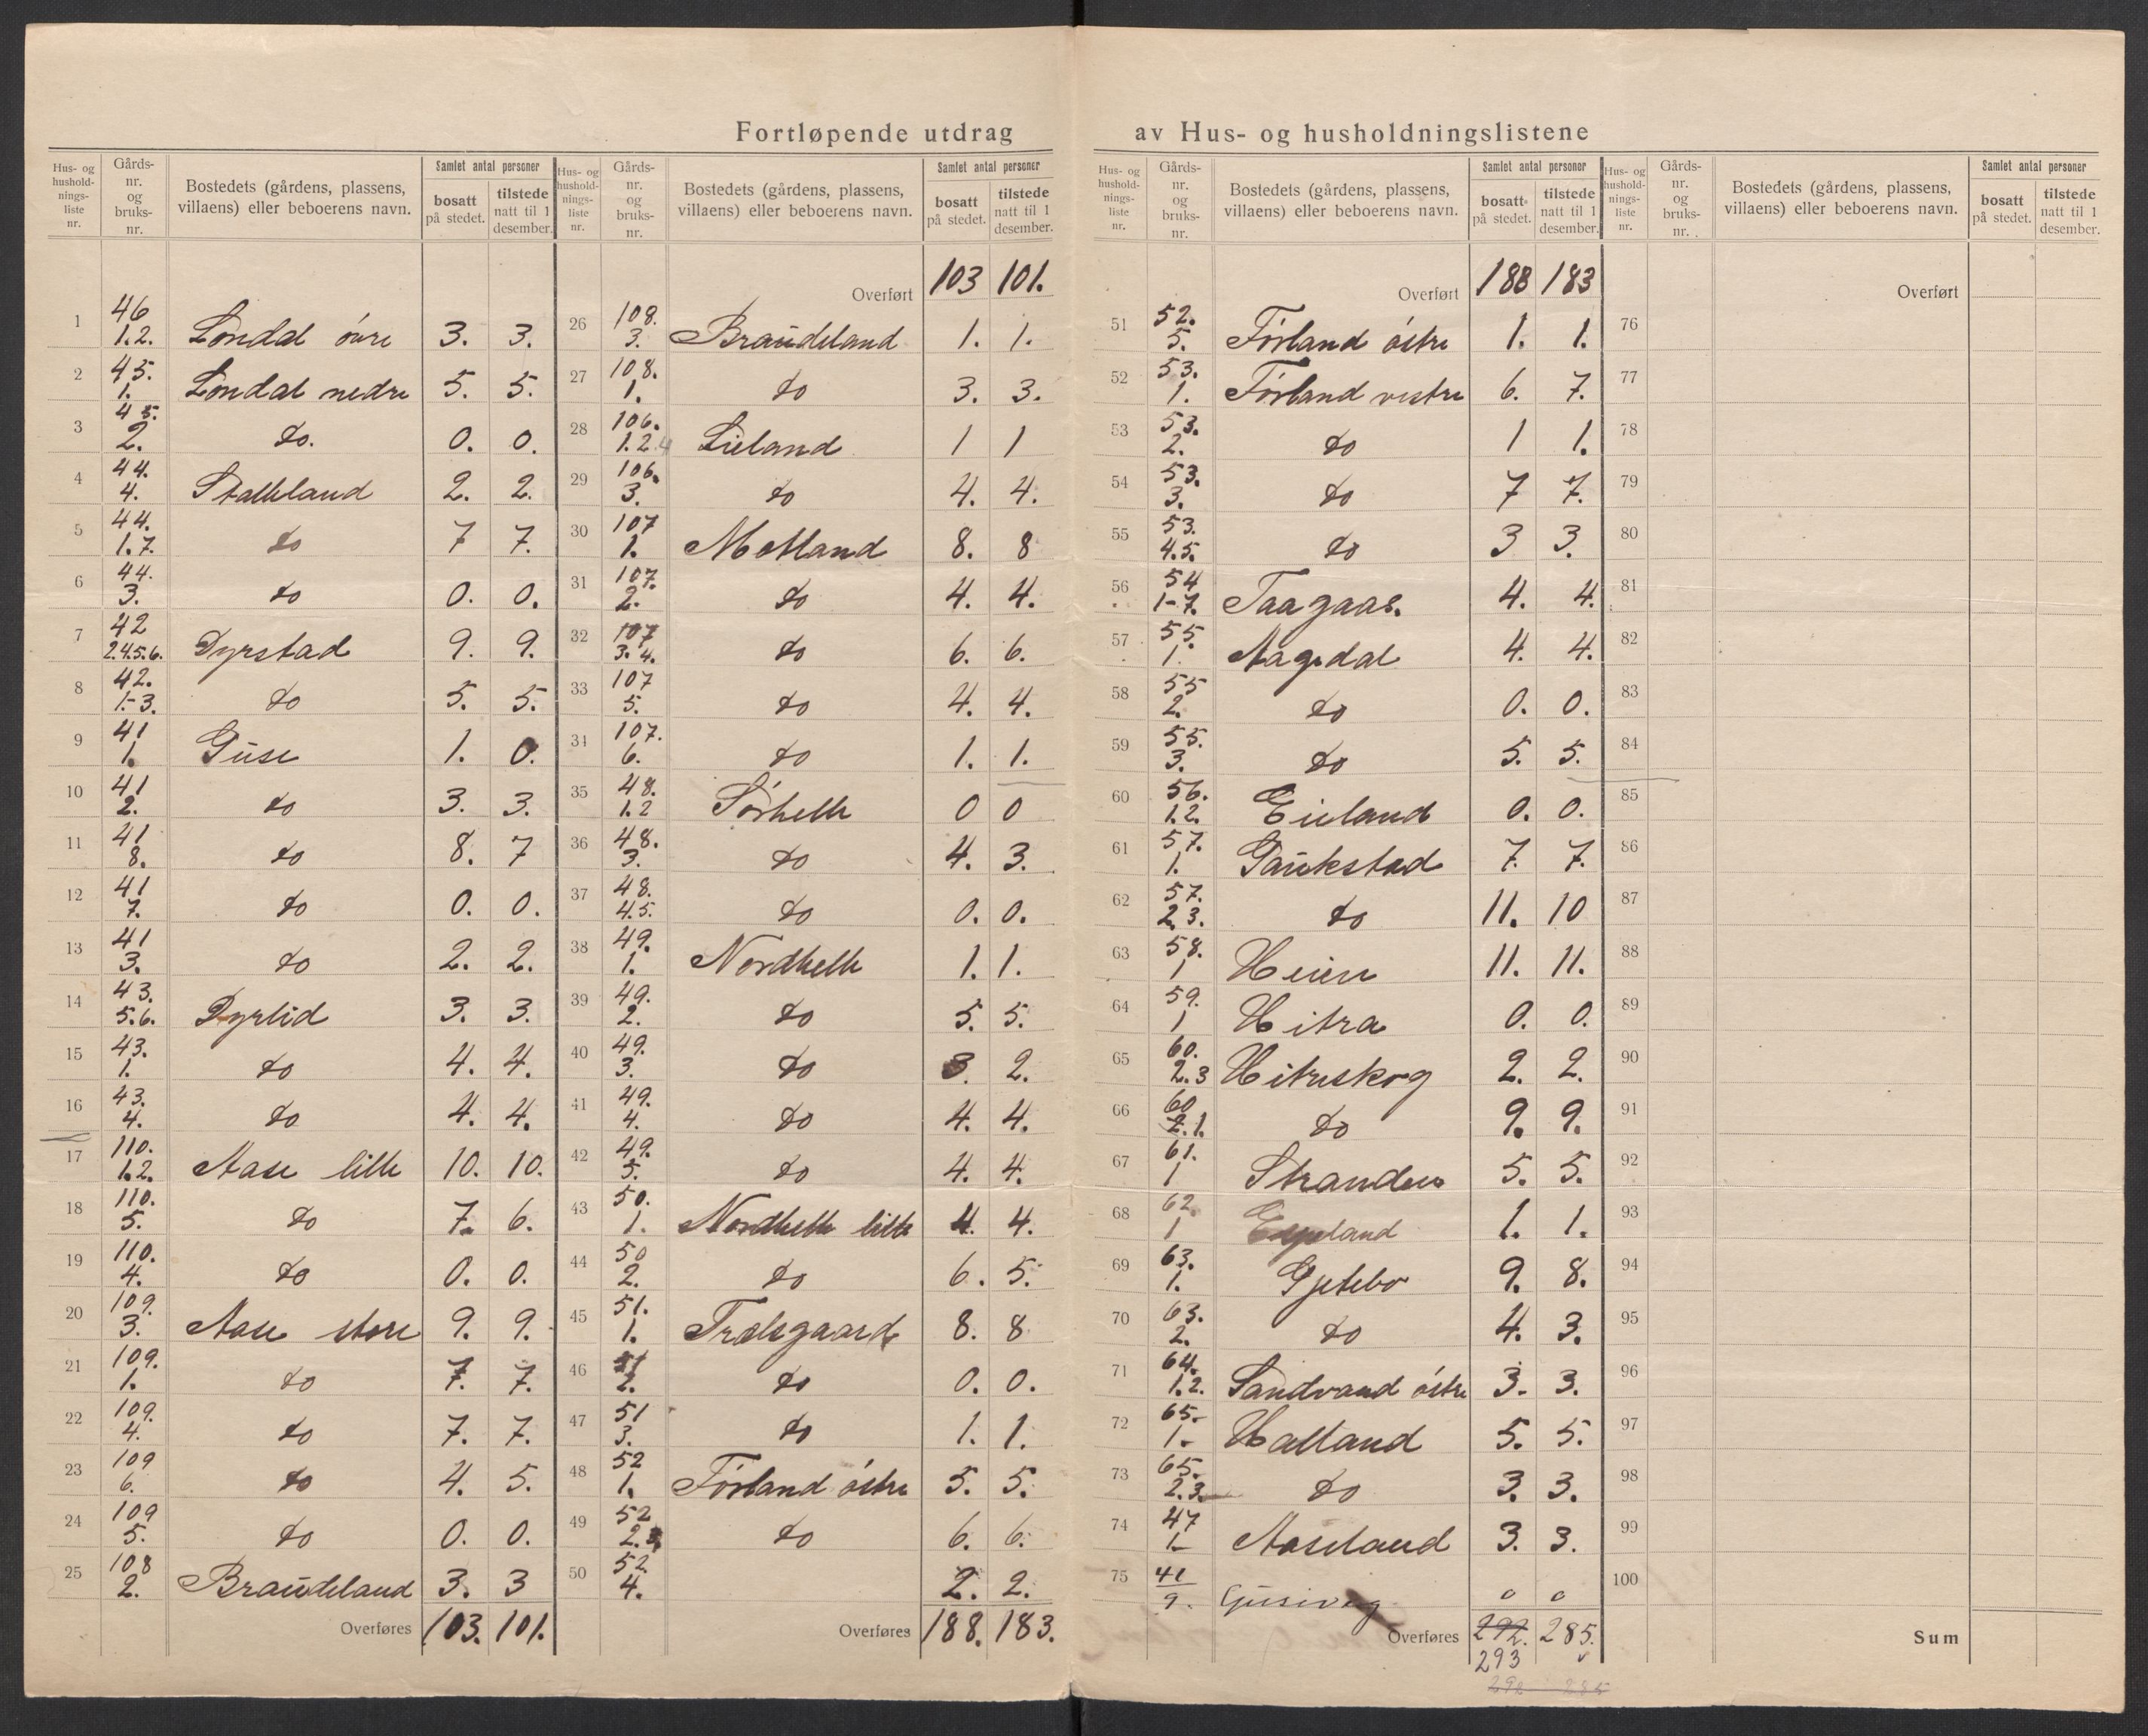 Fortløpende utdrag av Hus- og husholdningslistene
Hus- og hushold-nings-liste nr. | Gårds-nr. og bruks-nr. | Bostedets (gårdens, plassens, villaens) eller beboerens navn. | Samlet antal personer | bosatt på stedet. | tilstede natt til 1 desember.
1 | 46 1.2. | Londal övre | 3. | 3.
2 | 45. 1. | Londal nedre | 5. | 5.
3 | 45. 2. | do. | 0. | 0.
4 | 44. 4. | Stalleland | 2. | 2.
5 | 44. 1.7. | do | 7 | 7.
6 | 44. 3. | do | 0. | 0.
7 | 42 2.4.5.6. | Dyrstad | 9. | 9.
8 | 42. 1.-3. | do | 5. | 5.
9 | 41 1. | Guse | 1. | 0.
10 | 41 2. | do | 3. | 3.
11 | 41 8. | do | 8. | 7
12 | 41 7. | do | 0. | 0.
13 | 41 3. | do | 2. | 2.
14 | 43. 5.6. | Dyrlid | 3. | 3.
15 | 43. 1. | do | 4. | 4.
16 | 43. 4. | do | 4. | 4.
17 | 110. 1.2. | Aase lille | 10. | 10.
18 | 110. 5. | do | 7. | 6.
19 | 110. 4. | do | 0. | 0.
20 | 109. 3. | Aase store | 9. | 9.
21 | 109. 1. | do | 7. | 7.
22 | 109. 4. | do | 7. | 7.
23 | 109 6. | do | 4. | 5.
24 | 109 5. | do | 0. | 0.
25 | 108 2. | Braudeland | 3. | 3
Overføres 103. 101.
Hus- og hushold-nings-liste nr. | Gårds-nr. og bruks-nr. | Bostedets (gårdens, plassens, villaens) eller beboerens navn. | Samlet antal personer | bosatt på stedet. | tilstede natt til 1 desember.
Overført 103 101.
26 | 108. 3. | Braudeland | 1. | 1.
27 | 108. 1. | do | 3. | 3.
28 | 106. 1.2 4 | Lieland | 1 | 1
29 | 106. 3. | do | 4. | 4.
30 | 107 1. | Motland | 8. | 8
31 | 107. 2. | do | 4. | 4.
32 | 107 3. 4. | do | 6. | 6.
33 | 107 5. | do | 4. | 4.
34 | 107. 6. | do | 1. | 1.
35 | 48. 1.2 | Sørhelle | 0 | 0
36 | 48. 3. | do | 4. | 3.
37 | 48. 4.5. | do | 0. | 0.
38 | 49. 1. | Nordhelle | 1. | 1.
39 | 49. 2. | do | 5. | 5.
40 | 49. 3. | do | 3. | 2.
41 | 49. 4. | do | 4. | 4.
42 | 49. 5. | do | 4. | 4.
43 | 50. 1. | Nordhelle lille | 4. | 4.
44 | 50 2. | do | 6. | 5.
45 | 51. 1. | Trælsgaard | 8. | 8
46 | 51 2. | do | 0. | 0.
47 | 51 3. | do | 1. | 1.
48 | 52 1. | Förland östre | 5. | 5.
49 | 52 2.3. | do | 6. | 6.
50 | 52 4. | 2. | 2.
Overføres 188. 183.
Hus- og hushold-nings-liste nr. | Gårds-nr. og bruks-nr. | Bostedets (gårdens, plassens, villaens) eller beboerens navn. | Samlet antal personer | bosatt på stedet. | tilstede natt til 1 desember.
Overført 188 183
51 | 52. 5. | Förland östre | 1. | 1.
52 | 53. 1. | Förland vestre | 6. | 7.
53 | 53. 2. | do | 1 | 1.
54 | 53. 3. | do | 7 | 7.
55 | 53. 4.5. | do | 3 | 3.
56 | 54 1-7. | Taagaas. | 4. | 4.
57 | 55. 1. | Aagedal | 4. | 4.
58 | 55 2. | do | 0. | 0.
59 | 55. 3. | do | 5. | 5.
60 | 56. 1.2. | Eieland | 0. | 0.
61 | 57. 1. | Gaukstad | 7. | 7.
62 | 57. 2.3. | do | 11. | 10
63 | 58. 1 | Heien | 11. | 11.
64 | 59. 1 | Hitra | 0. | 0.
65 | 60. 2.3 | Hitreskog | 2. | 2.
66 | 60 2.1. | do | 9. | 9.
67 | 61. 1 | Stranden | 5. | 5.
68 | 62. 1 | Espeland | 1. | 1.
69 | 63. 1. | Gjetebo | 9. | 8.
70 | 63. 2. | do | 4. | 3.
71 | 64. 1.2. | Sandvand östre | 3. | 3.
72 | 65. 1. | Hatland | 5. | 5.
73 | 65. 2.3. | do | 3. | 3.
74 | 47 1 | Aaseland | 3. | 3.
75 | 41 9. | Gusiveg | 0 | 0
Overføres 292. 285.
293
292 285
Hus- og hushold-nings-liste nr. | Gårds-nr. og bruks-nr. | Bostedets (gårdens, plassens, villaens) eller beboerens navn. | Samlet antal personer | bosatt på stedet. | tilstede natt til 1 desember.
Overført
76
77
78
79
80
81
82
83
84
85
86
87
88
89
90
91
92
93
94
95
96
97
98
99
100
Sum